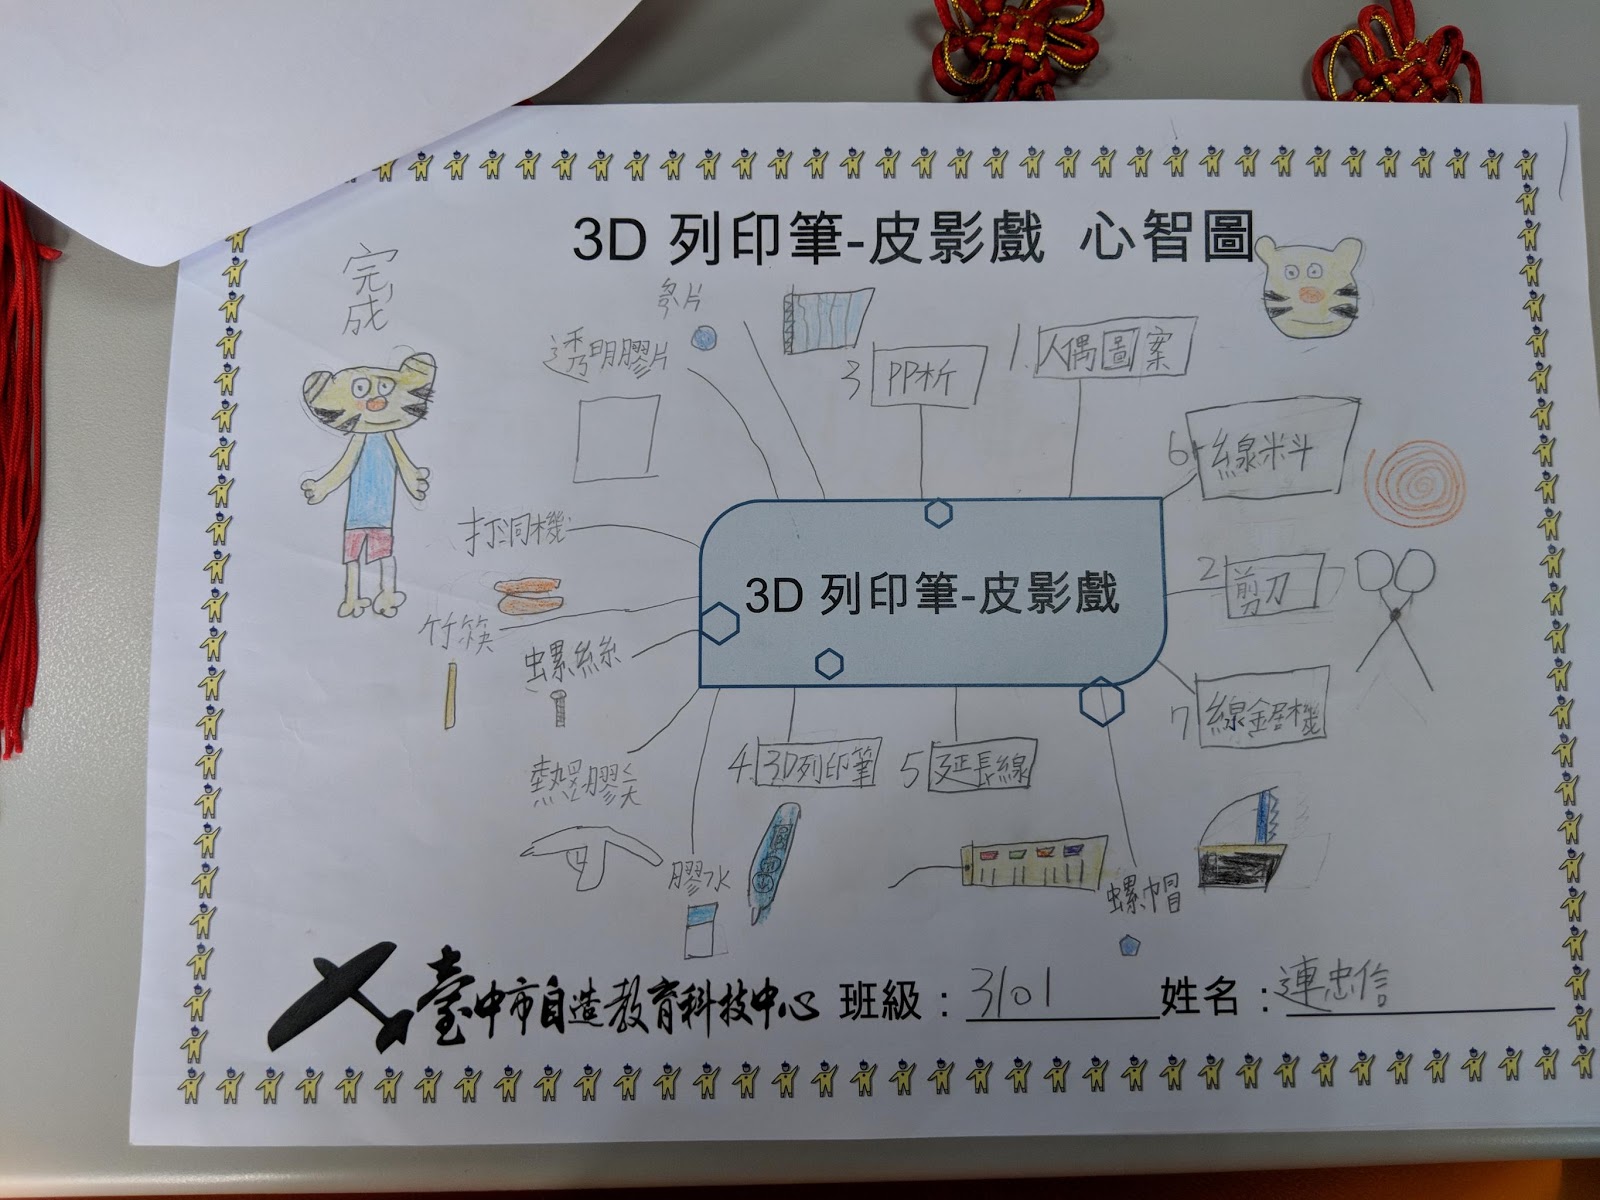 3D 列印筆-皮影戲 心智圖
完成
透明膠片
3 PP板
1. 人偶圖案
6 線料斗
打洞機
3D 列印筆-皮影戲
2 剪刀
竹筷
螺絲
7 線鋸機
熱熔膠
4. 3D列印筆
5 延長線
膠水
螺帽
臺中市自造教育科技中心 班級：3101 姓名：連忠信